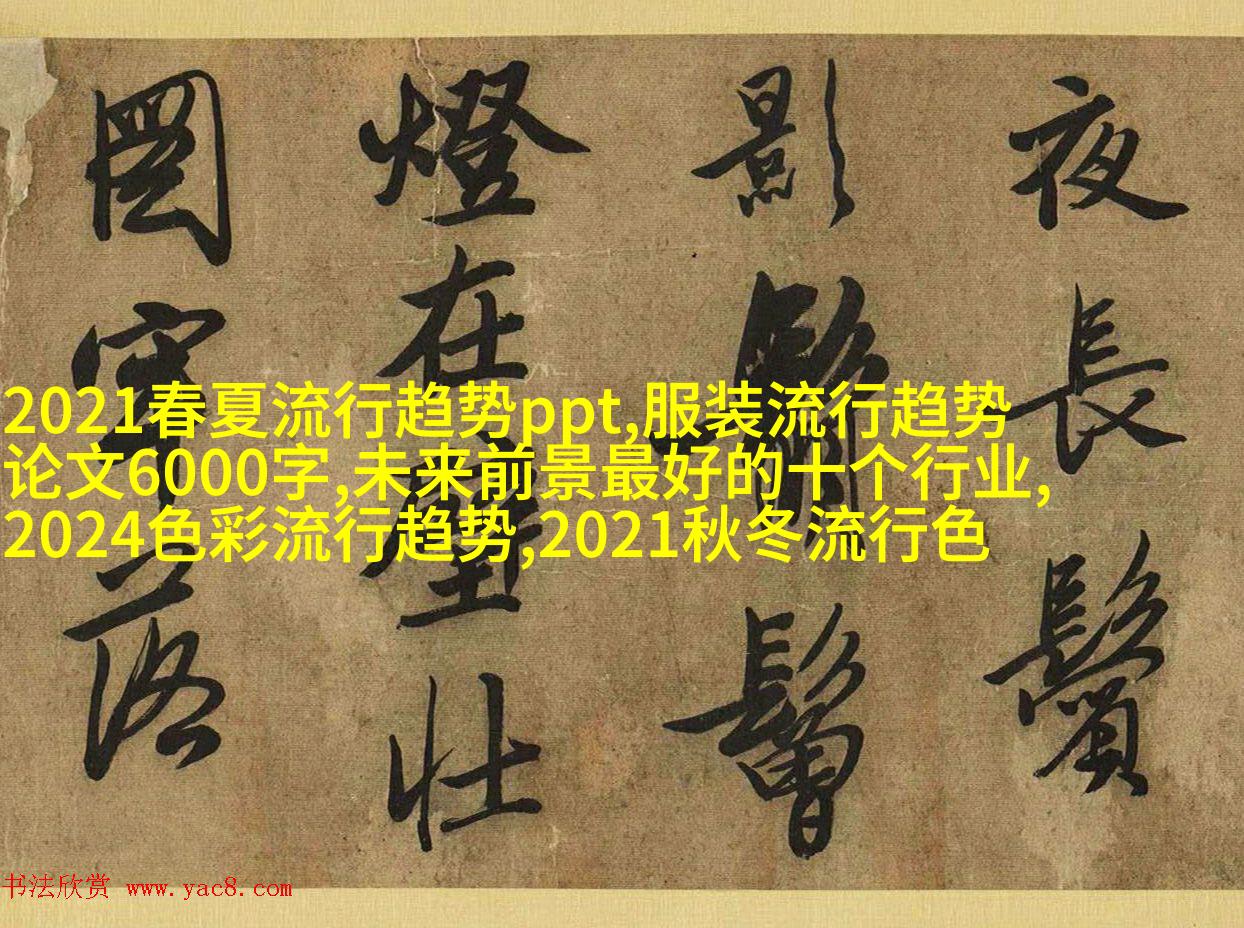 夜長鬢
影鬅鬙
燈在壁壯
圖牢落
2021春夏流行趋势ppt,服装流行趋势
论文6000字,未来前景最好的十个行业,
2024色彩流行趋势,2021秋冬流行色
书法欣赏 www.yac8.com